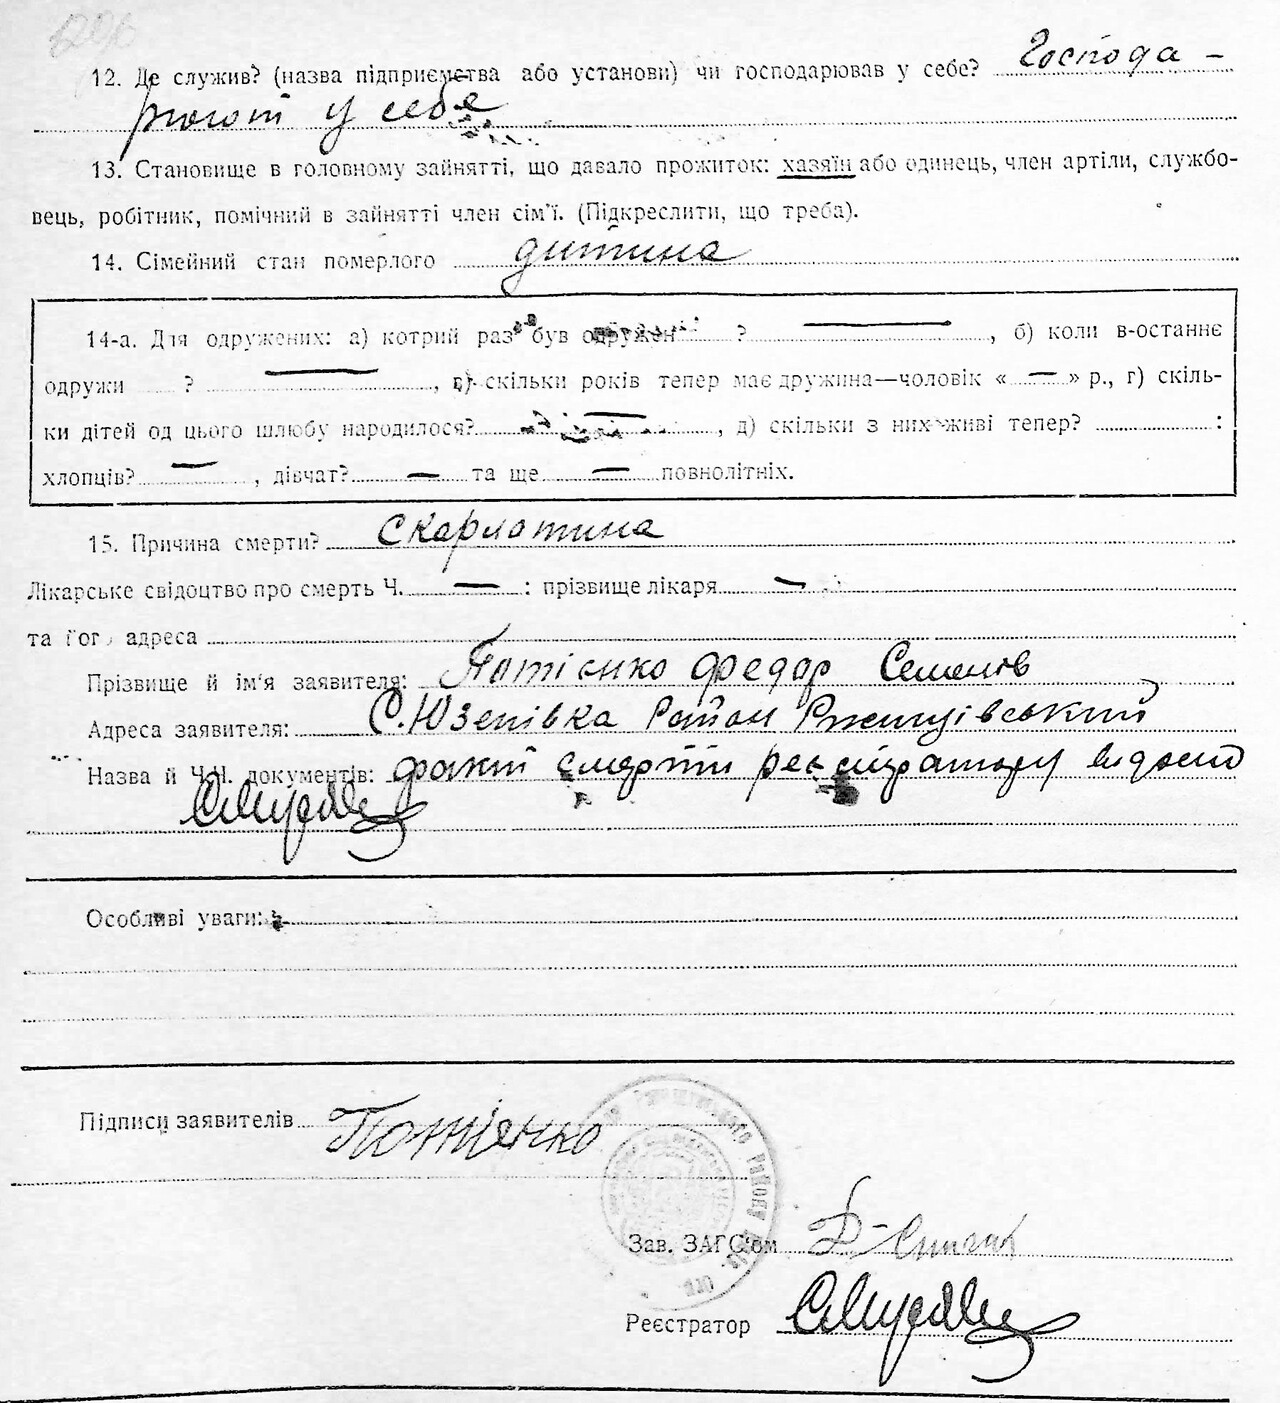 12. Де служив? (назва підприємства або установи) чи господарював у себе? Господа-
рюют у себе
13. Становище в головному зайнятті, що давало прожиток: хазяїн або одинець, член артіли, службо-
вець, робітник, помічний в зайнятті член сім'ї. (Підкреслити, що треба).
14. Сімейний стан померлого дитина
14-а. Для одружених: а) котрий раз був одружен ? —, б) коли в-останнє
одружи ? —, в) скільки років тепер має дружина—чоловік « — » р., г) скіль-
ки дітей од цього шлюбу народилося? —, д) скільки з них живі тепер? :
хлопців? —, дівчат? — та ще — повнолітніх.
15. Причина смерти? Скарлатина
Лікарське свідоцтво про смерть Ч. — : прізвище лікаря —
та його адреса
Прізвище й ім'я заявителя: Потієнко Федор Семенов
Адреса заявителя: С. Юзепівка Район Ржищівський
Назва й Ч.Ч. документів: факт смерти реєстратору відомо
Особливі уваги:
Підписи заявителів Потієнко
Району
Зав. ЗАГС'ом
Реєстратор